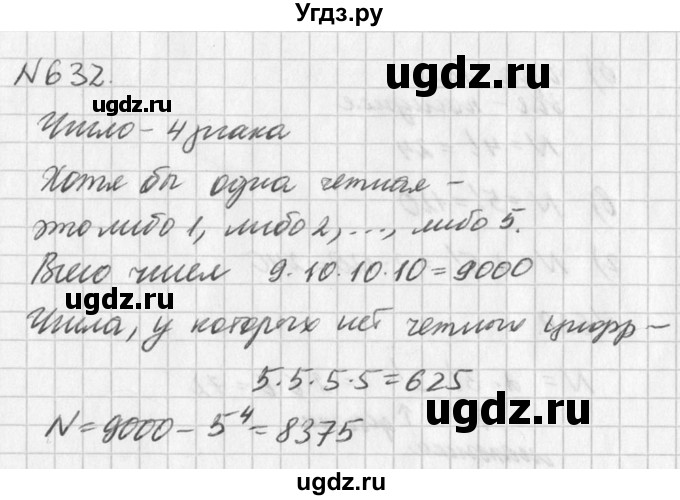 Угдз.ру
N632.
ugdz.ru
Число – 4 знака
Хотя бы одна четная –
ugdz.ru
это либо 1, либо 2, ..., либо 5.
Всего чисел 9·10·10·10=9000
ugdz.ru
ugdz.ru
Числа, у которых нет четных цифр –
5·5·5·5=625
ugdz.ru
N=9000–5⁴=8375
ugdz.ru
ugdz.ru